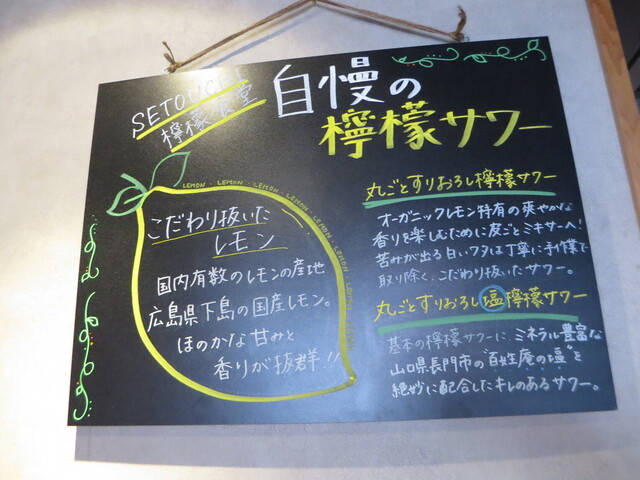 SETOUCHI
檸檬食堂
自慢の
檸檬サワー
LEMON・LEMON・LEMON・LEMON・LEMON・LEMON・LEMON
こだわり抜いた
レモン
国内有数のレモンの産地
広島県下島の国産レモン。
ほのかな甘みと
香りが抜群!!
丸ごとすりおろし檸檬サワー
オーガニックレモン特有の爽やかな
香りを楽しむために皮ごとミキサーへ!
苦みが出る白いワタは丁寧に手作業で
取り除く、こだわり抜いたサワー。
丸ごとすりおろし塩檸檬サワー
基本の檸檬サワーに、ミネラル豊富な
山口県長門市の"百姓庵の塩"を
絶妙に配合したキレのあるサワー。